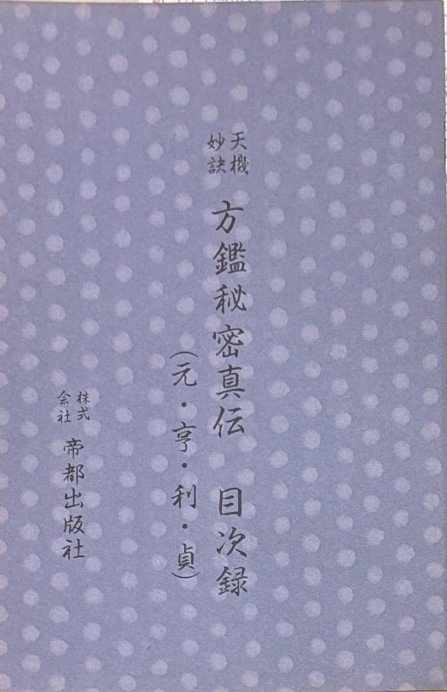 天機
妙訣
方鑑秘密真伝　目次録
（元・亨・利・貞）
株式
会社
帝都出版社